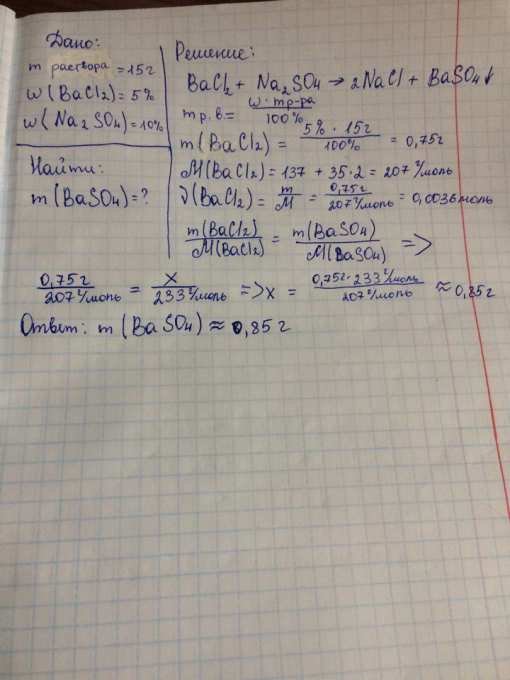 Дано:
m раствора = 15г
ω(BaCl₂) = 5%
ω(Na₂SO₄) = 10%
Найти:
m(BaSO₄) = ?
Решение:
BaCl₂ + Na₂SO₄ → 2NaCl + BaSO₄↓
m р.в = ω · m р-ра / 100%
m(BaCl₂) = 5% · 15г / 100% = 0,75г
M(BaCl₂) = 137 + 35·2 = 207 г/моль
ν(BaCl₂) = m/M = 0,75г / 207 г/моль = 0,0036 моль
m(BaCl₂) / M(BaCl₂) = m(BaSO₄) / M(BaSO₄) =>
0,75г / 207 г/моль = x / 233 г/моль => x = 0,75г · 233 г/моль / 207 г/моль ≈ 0,85г
Ответ: m(BaSO₄) ≈ 0,85 г